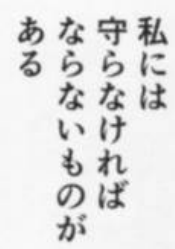 私には
守らなければ
ならないものが
ある